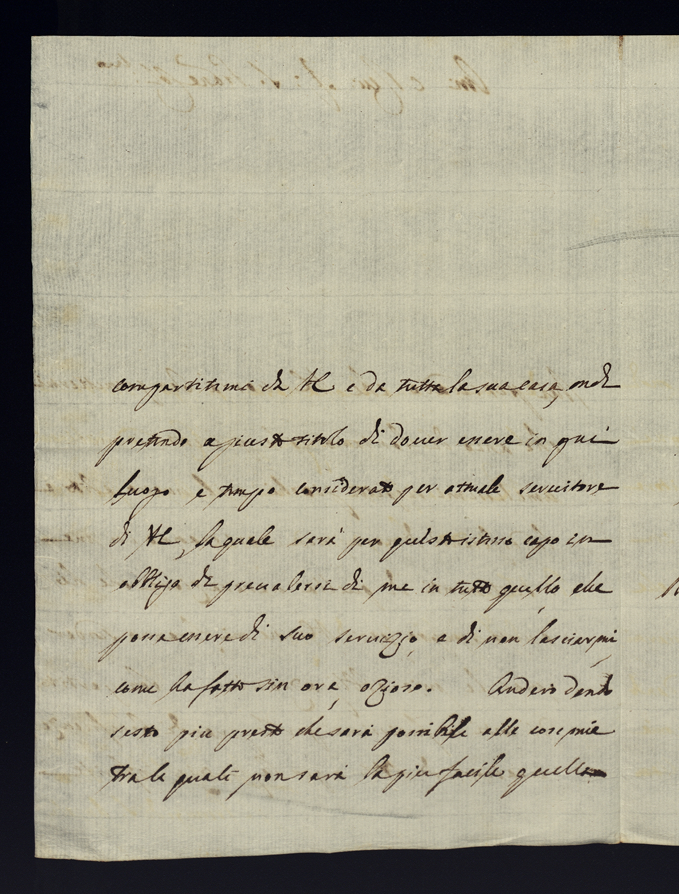 compartitimi da VE e da tutta la sua casa, onde
pretendo a giusto titolo di dover essere in ogni
luogo e tempo considerato per attuale servitore
di VE, la quale sarà per questo istesso capo in
obbligo di prevalersi di me in tutto quello che
possa essere di suo servizio, e di non lasciarmi,
come ha fatto sin ora, ozioso. Anderò dando
sesto più presto che sarà possibile alle cose mie
tra le quali non sarà la piu facile quella